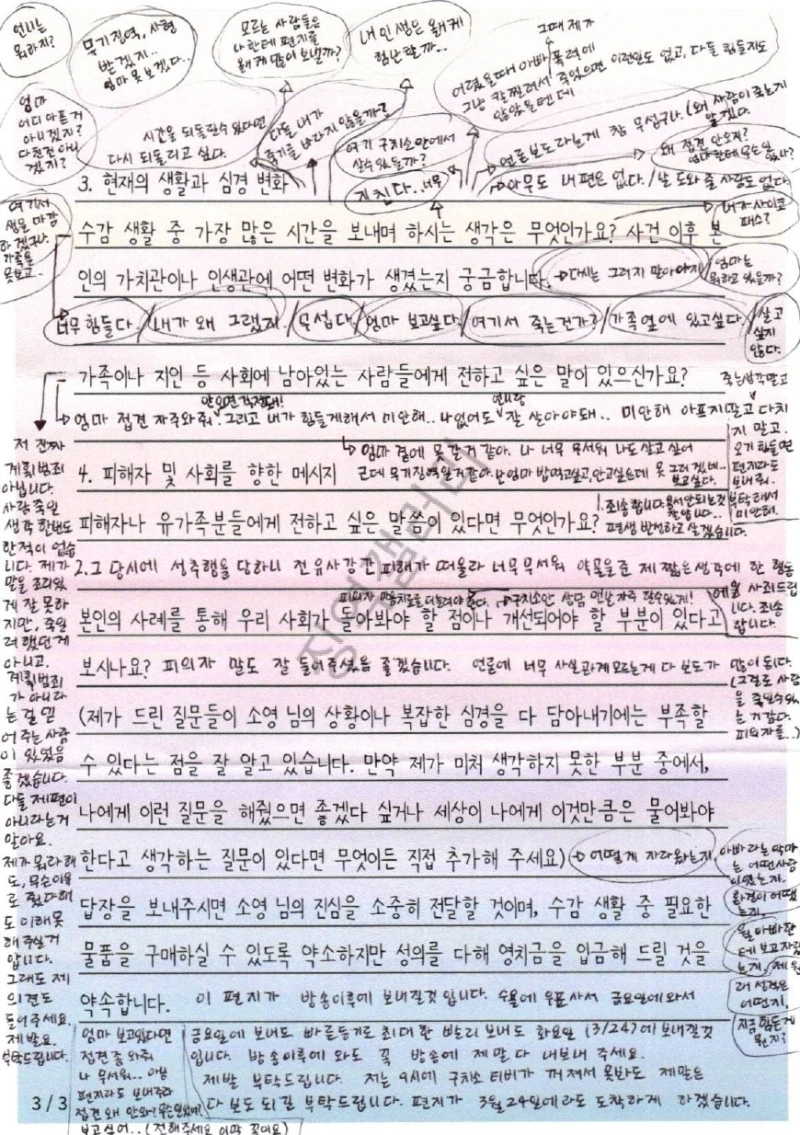 언니는 뭐하지?
무기징역, 사형 받겠지.. 엄마 못 보겠다..
모르는 사람들은 나한테 편지를 왜 이렇게 많이 보낼까?
내 인생은 왜 이렇게 험난할까..
그때 제가 어렸을때 아빠 폭력에
그냥 칼 찔려서 죽었으면 이런일도 없고, 다들 힘들지도 않았을텐데
엄마 어디 아픈거 아니겠지? 다친건 아니겠지?
시간을 되돌릴수 있다면 다시 되돌리고 싶다.
다들 내가 죽기를 바라지 않을까?
여기 구치소안에서 살수 있을까?
언론보도라는게 참 무섭구나. (왜 사람이 죽는지 알겠다.
왜 접견 안오지? 엄마한테 무슨일 있나?
3. 현재의 생활과 심경 변화
지친다.. 너무
아무도 내 편은 없다. / 날 도와줄 사람도 없다.
내가 사이코패스?
여기서 생을 마감하겠구나. 가족을 못보고..
수감 생활 중 가장 많은 시간을 보내며 하시는 생각은 무엇인가요? 사건 이후 본
인의 가치관이나 인생관에 어떤 변화가 생겼는지 궁금합니다.
다시는 그러지 말아야지
엄마는 뭐하고 있을까?
너무 힘들다. / 내가 왜 그랬지 / 무섭다 / 엄마 보고싶다. / 여기서 죽는건가? / 가족옆에 있고싶다. / 살고 싶지 않다.
가족이나 지인 등 사회에 남아있는 사람들에게 전하고 싶은 말이 있으신가요?
안오면 걱정돼!
엄마 접견 자주와줘 그리고 내가 힘들게해서 미안해.. 나 없어도 언니랑 잘 살아야돼.. 미안해 아프지말고 다치지 말고.
죽는생각말고
오기 힘들면 편지라도 보내줘. 부탁해서 미안해.
엄마 곁에 못갈거 같아. 나 너무 무서워 나도 살고 싶어
근데 무기징역일거같아. 난 엄마 밥먹고싶고, 안고싶은데 못 그러겠네.. 보고싶다.
4. 피해자 및 사회를 향한 메시지
피해자나 유가족분들에게 전하고 싶은 말씀이 있다면 무엇인가요?
1. 죄송합니다. 용서안되는것 잘압니다.. 평생 반성하고 살겠습니다.
2. 그 당시에 성추행을 당하니 전 유사강간피해가 떠올라 너무무서워 약물을준 제 짧은생각에 한 행동에 사죄드립니다. 죄송합니다.
구치소안 상담 맨날 자주 할수있게!
본인의 사례를 통해 우리 사회가 돌아봐야 할 점이나 개선되어야 할 부분이 있다고
보시나요? 피의자 말도 잘 들어주셨음 좋겠습니다. 언론에 너무 사실관계모르는게 다 보도가 많이 된다.
(그걸로 사람을 죽일수있는거같다. 피의자를..)
(제가 드린 질문들이 소영 님의 상황이나 복잡한 심경을 다 담아내기에는 부족할
수 있다는 점을 잘 알고 있습니다. 만약 제가 미처 생각하지 못한 부분 중에서,
나에게 이런 질문을 해줬으면 좋겠다 싶거나 세상이 나에게 이것만큼은 물어봐야
한다고 생각하는 질문이 있다면 무엇이든 직접 추가해 주세요)
어떻게 자라왔는지, 아빠라는 악마는 어떤사람이였는지, 환경이 어땠는지,
답장을 보내주시면 소영 님의 진심을 소중히 전달할 것이며, 수감 생활 중 필요한
물품을 구매하실 수 있도록 약소하지만 성의를 다해 영치금을 입금해 드릴 것을
약속합니다.
지금 힘든게 뭔지?
이 편지가 방송이후에 보내질것 입니다. 수요일에 우표사서 금요일에 와서
금요일에 보내도 빠른등기로 최대한 빨리 보내도 화요일 (3/24)에 보내질것
입니다. 방송이후에 와도 꼭 방송에 제 말 다 내보내 주세요.
제발 부탁드립니다. 저는 9시에 구치소 티비가 꺼져서 못봐도 제말은
다 보도 되길 부탁드립니다. 편지가 3월 24일에라도 도착하게 하겠습니다.
저 진짜 계획범죄 아닙니다. 사람 죽일 생각 한번도 한적이 없습니다. 제가 말을 조리있게 잘 못하지만, 죽일려했던게 아니고,
계획범죄가 아니라는걸 믿어 주는 사람이 있었음 좋겠습니다.
다들 제편이 아니라는거 알아요.
제가 뭐라 해도, 무슨이유로 줬다해도 이해못해주실거 압니다.
그래도 제 의견도 들어주세요. 제발요. 부탁드립니다.
엄마 보고있다면 접견 좀 와줘
나 무서워.. 아님 편지라도 보내주라
접견 왜 안와? 무슨일있어?
보고싶어.. (전해주세요 이말 꼭이요)
3 / 3
징역갤러리